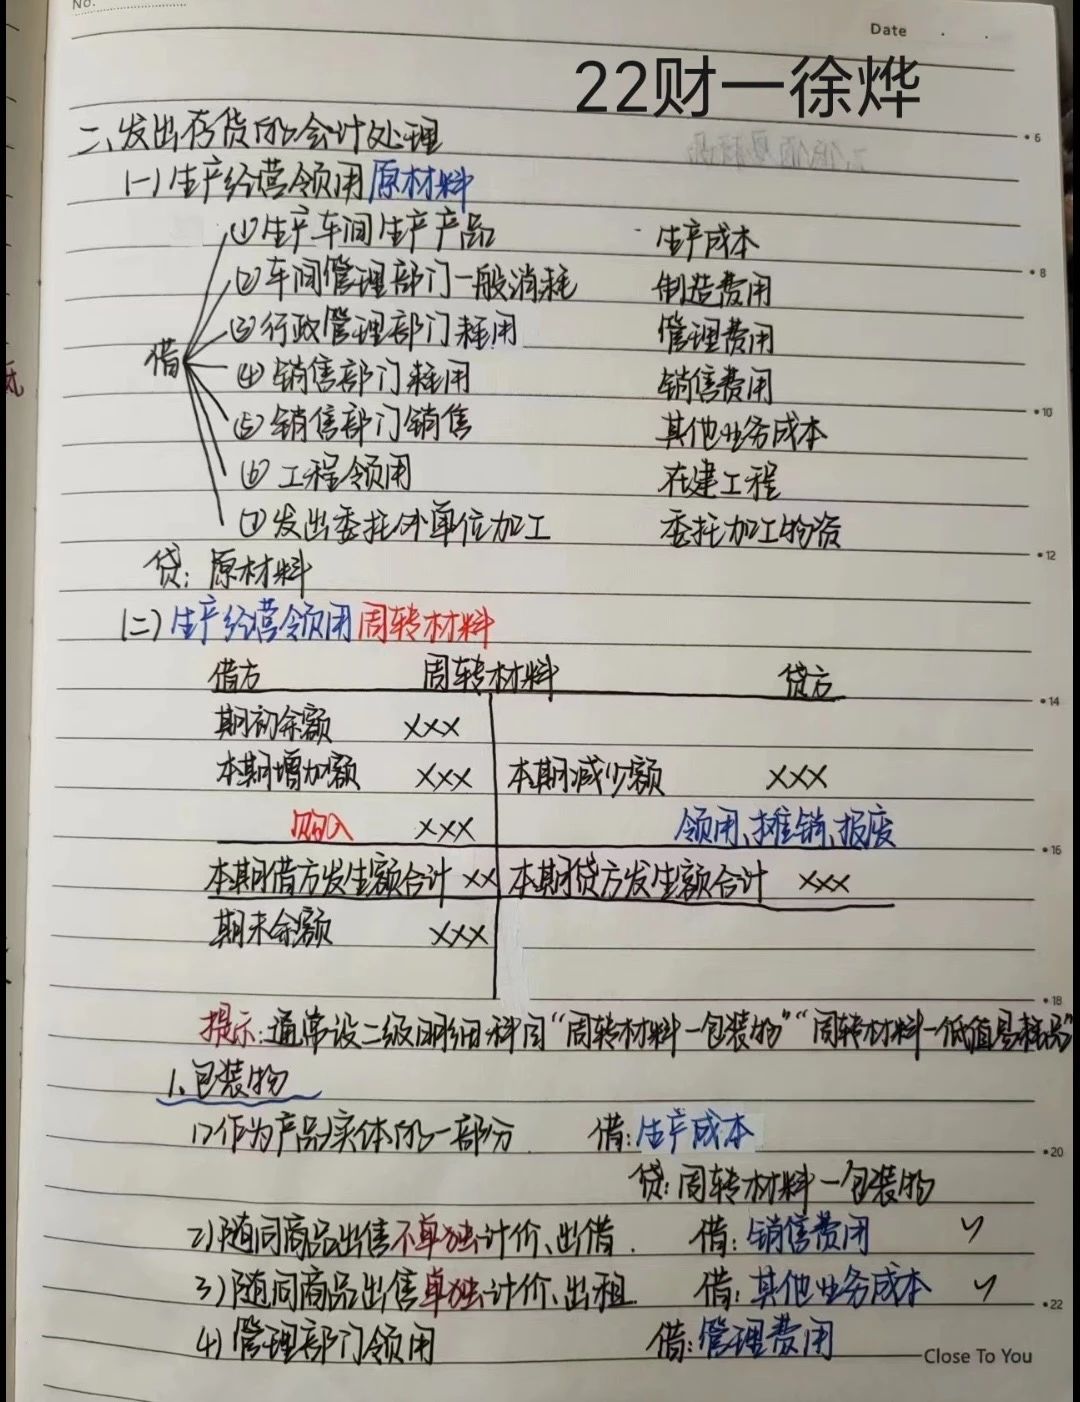 No.
Date
22财一徐烨
二、发出存货的会计处理
(一)生产经营领用原材料
(1)生产车间生产产品 生产成本
(2)车间管理部门一般消耗 制造费用
(3)行政管理部门耗用 管理费用
借 (4)销售部门耗用 销售费用
(5)销售部门销售 其他业务成本
(6)工程领用 在建工程
(7)发出委托外单位加工 委托加工物资
贷:原材料
(二)生产经营领用周转材料
借方 周转材料 贷方
期初余额 XXX
本期增加额 XXX 本期减少额 XXX
购入 XXX 领用、摊销、报废
本期借方发生额合计 XX 本期贷方发生额合计 XXX
期末余额 XXX
提示:通常设二级明细科目“周转材料—包装物”“周转材料—低值易耗品”
1、包装物
1)作为产品实体的一部分 借:生产成本
贷:周转材料—包装物
2)随同商品出售不单独计价、出借. 借:销售费用 ✓
3)随同商品出售单独计价、出租 借:其他业务成本 ✓
4)管理部门领用 借:管理费用
Close To You
6
8
10
12
14
16
18
20
22